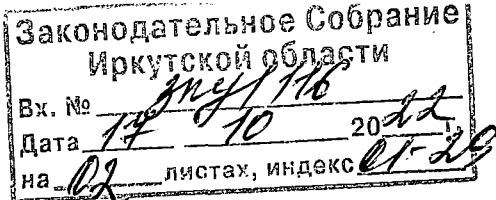 Законодательное Собрание
Иркутской области
Вх. № зпу/116
Дата 17 10 2022 г.
на 02 листах, индекс 01-29